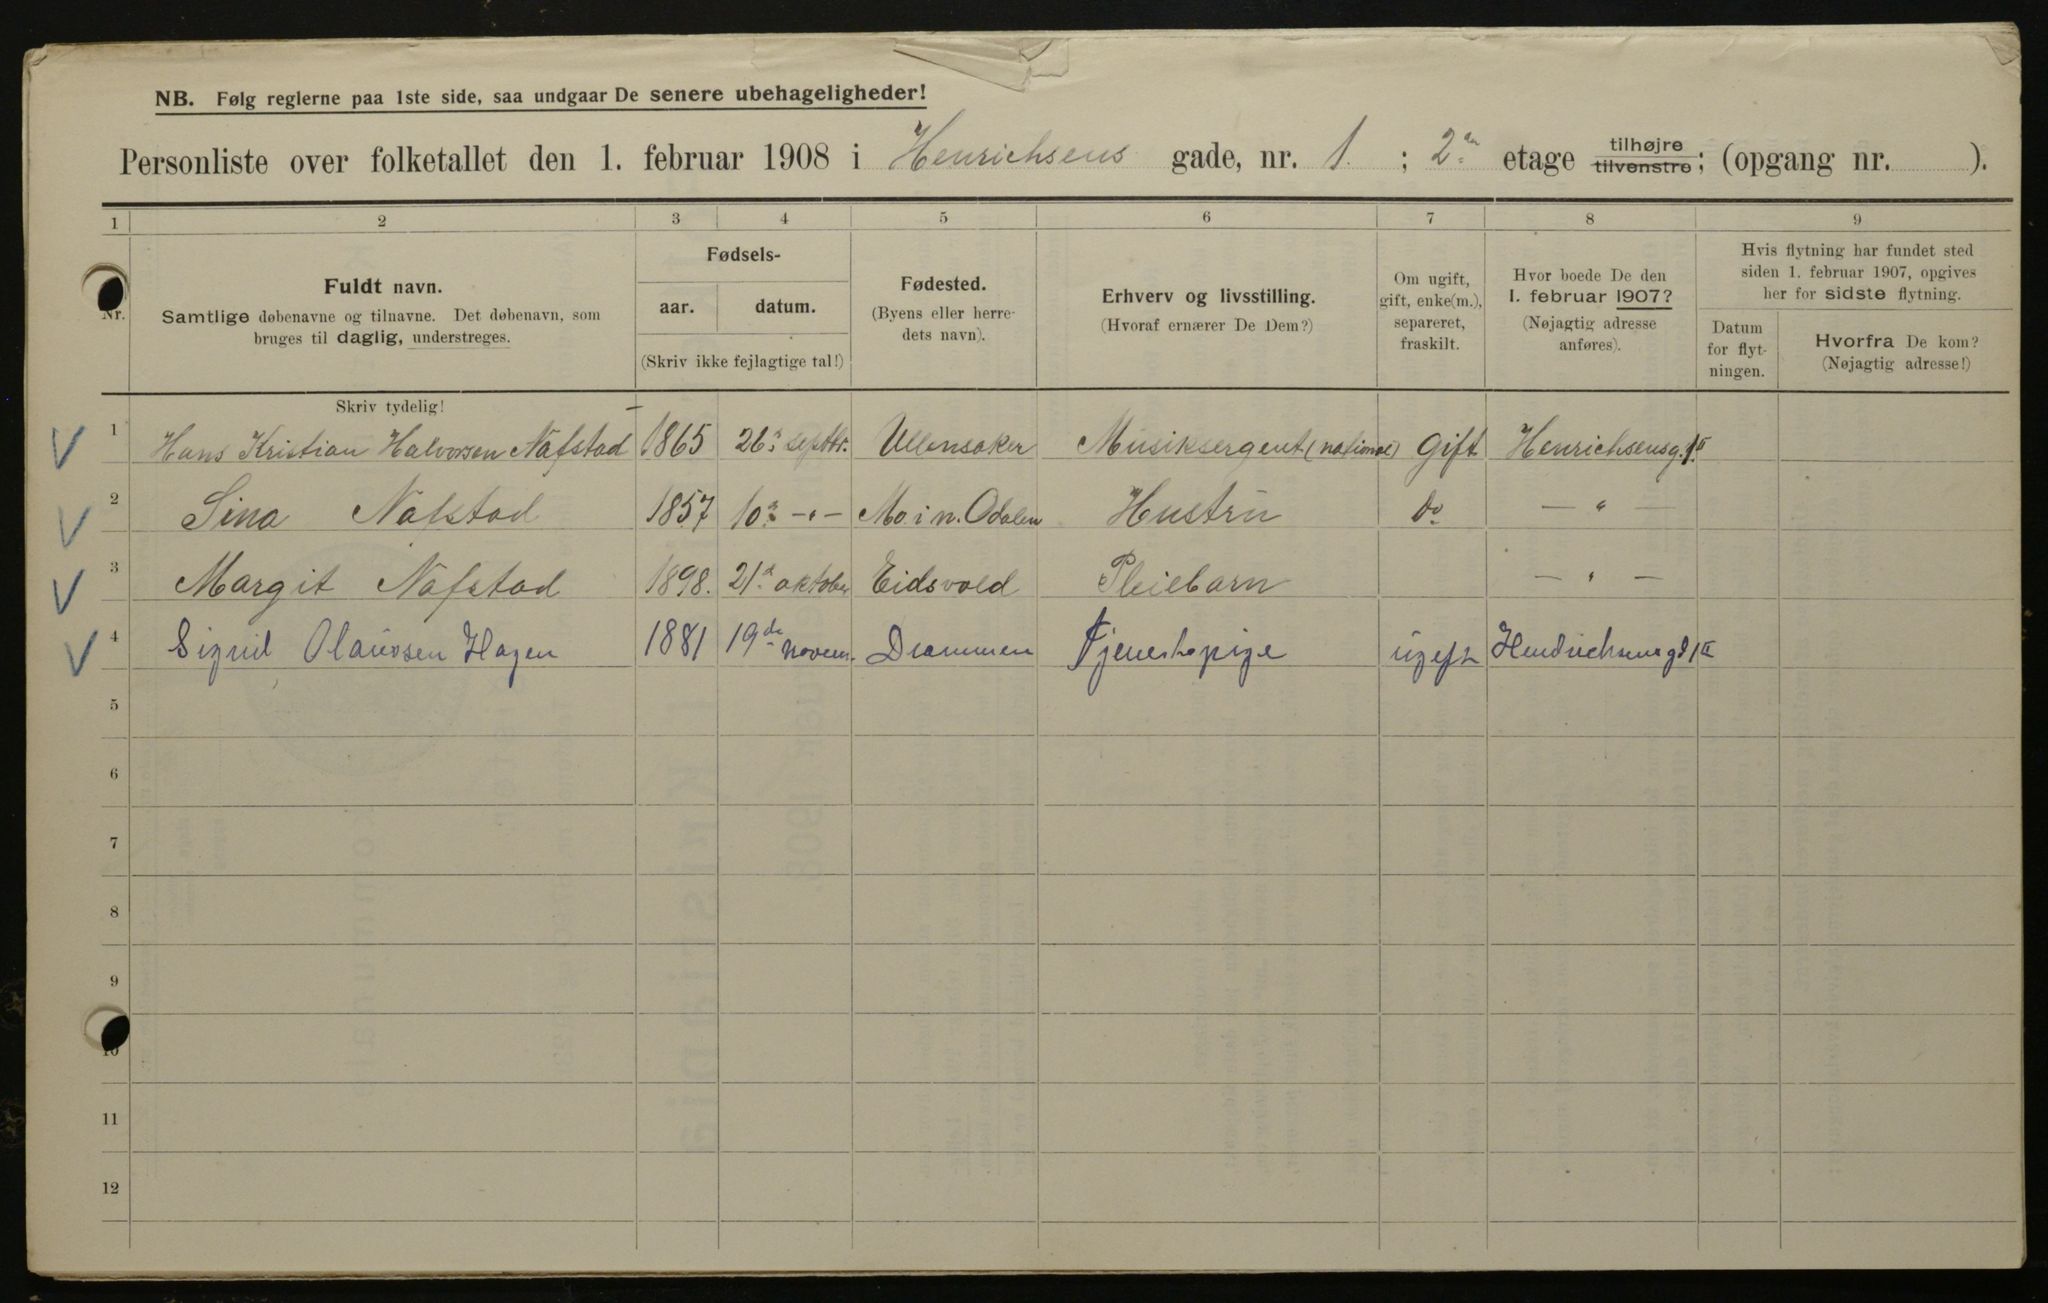 NB. Følg reglerne paa 1ste side, saa undgaar De senere ubehageligheder!
Personliste over folketallet den 1. februar 1908 i Henrichsens gade, nr. 1. ; 2en etage tilhøjre tilvenstre; (opgang nr. ).
1 2 3 4 5 6 7 8 9
Nr.
Fuldt navn.
Samtlige døbenavne og tilnavne. Det døbenavn, som
bruges til daglig, understreges.
Fødsels-
aar. datum.
(Skriv ikke fejlagtige tal!)
Fødested.
(Byens eller herre-
dets navn).
Erhverv og livsstilling.
(Hvoraf ernærer De Dem?)
Om ugift,
gift, enke(m.),
separeret,
fraskilt.
Hvor boede De den
1. februar 1907?
(Nøjagtig adresse
anføres).
Hvis flytning har fundet sted
siden 1. februar 1907, opgives
her for sidste flytning.
Datum
for flyt-
ningen.
Hvorfra De kom?
(Nøjagtig adresse!)
Skriv tydelig!
1 Hans Kristian Halvorsen Nafstad 1865 26. septbr. Ullensaker Musiksergeut (national) Gift Henrichsensg. 1 II
2 Sina Nafstad 1857 10. -"- Mo i n. Odalen Hustru Do — " —
3 Margit Nafstad 1898. 21. oktober Eidsvold Pleiebarn — " —
4 Sigrid Olaussen Hagen 1881 19de novem. Drammen Tjenestepige ugift Hendrichsensgd 1 II
5
6
7
8
9
10
11
12